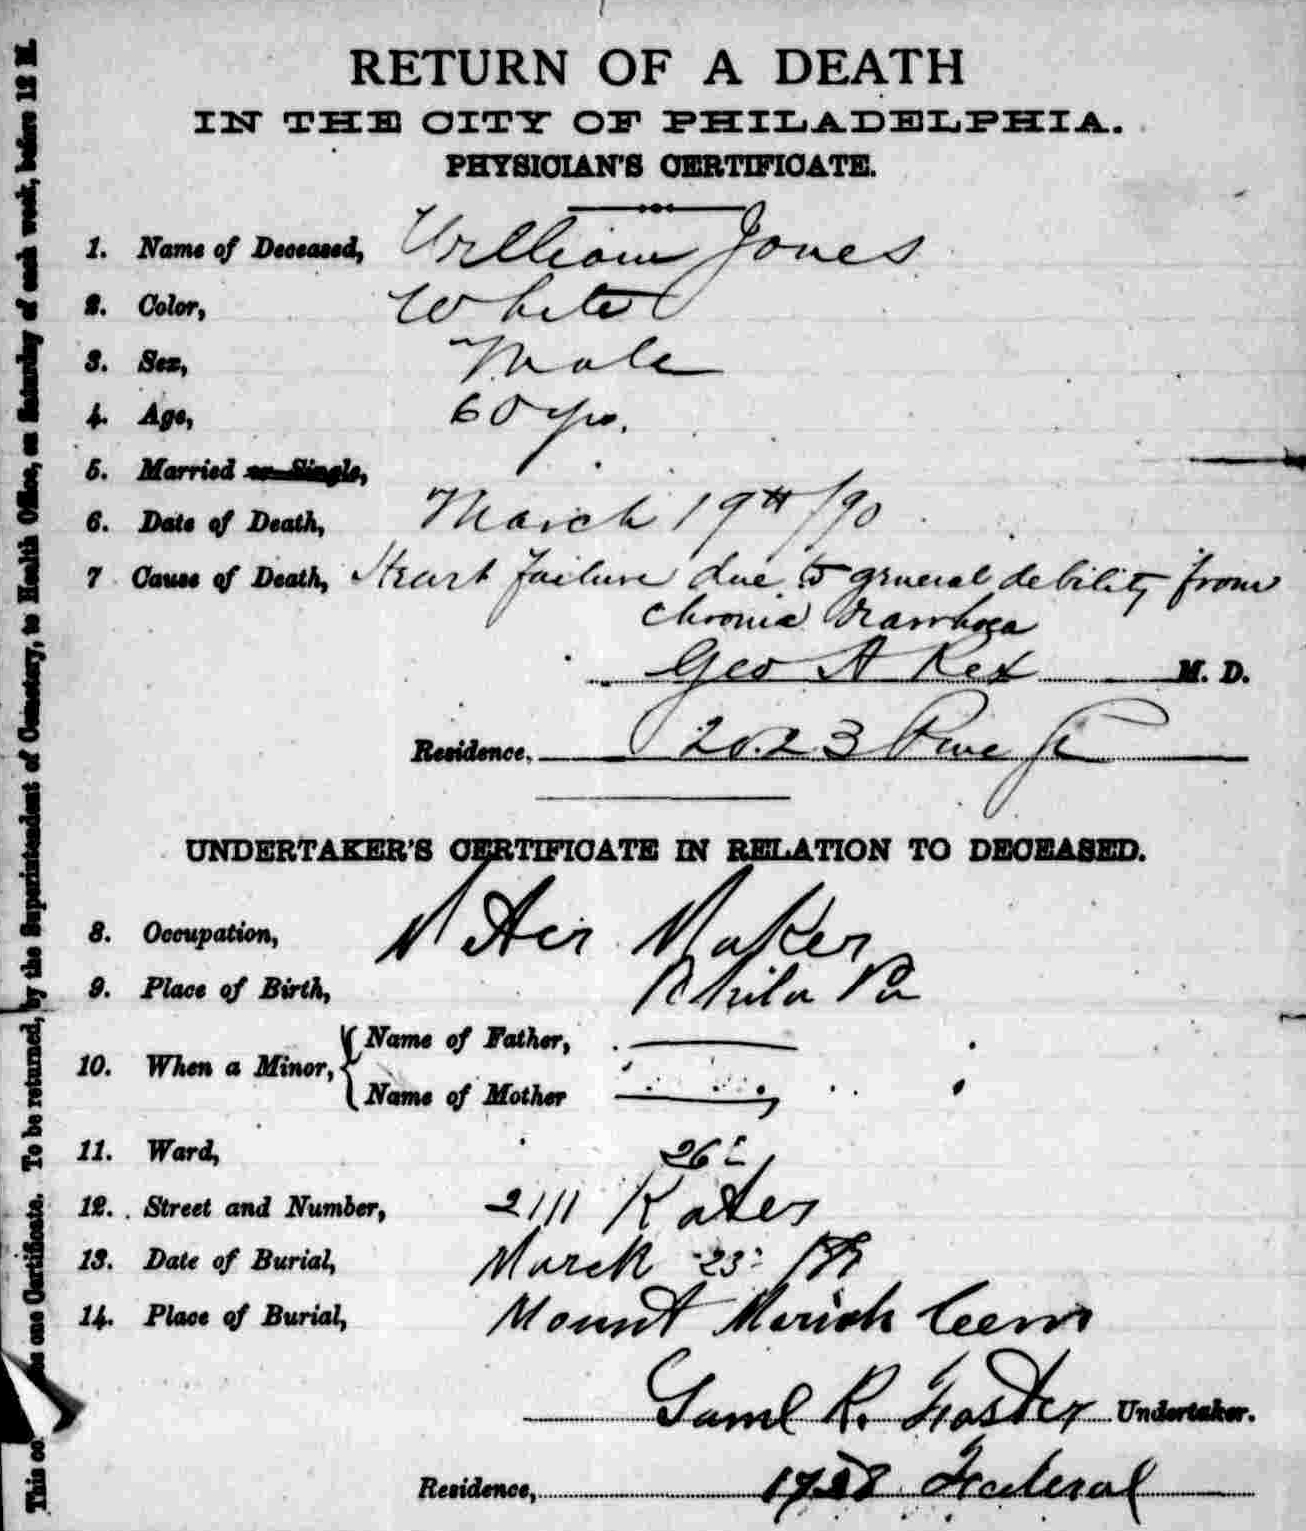 RETURN OF A DEATH
IN THE CITY OF PHILADELPHIA.
PHYSICIAN'S CERTIFICATE.
1. Name of Deceased, William Jones
2. Color, White
3. Sex, Male
4. Age, 60 yrs.
5. Married or Single,
6. Date of Death, March 19th /90
7 Cause of Death, Heart failure due to general debility from
chronic diarrhoea
Geo A Rex M. D.
Residence. 2023 Pine St
UNDERTAKER'S CERTIFICATE IN RELATION TO DECEASED.
8. Occupation, Maker
9. Place of Birth, Phila Pa
10. When a Minor, Name of Father,
Name of Mother
11. Ward, 26
12. Street and Number, 2111 Kater
13. Date of Burial, March 23
14. Place of Burial, Mount Moriah Cem
Saml R. Foster Undertaker.
Residence, Federal
This co one Certificate. To be returned, by the Superintendent of Cemetery, to Health Office, on Saturday of each week, before 12 M.